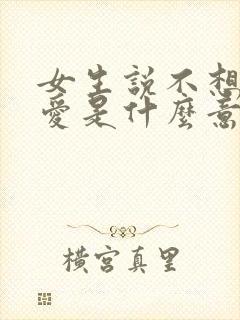 女生説不想
愛是什麼意
橫宮真里